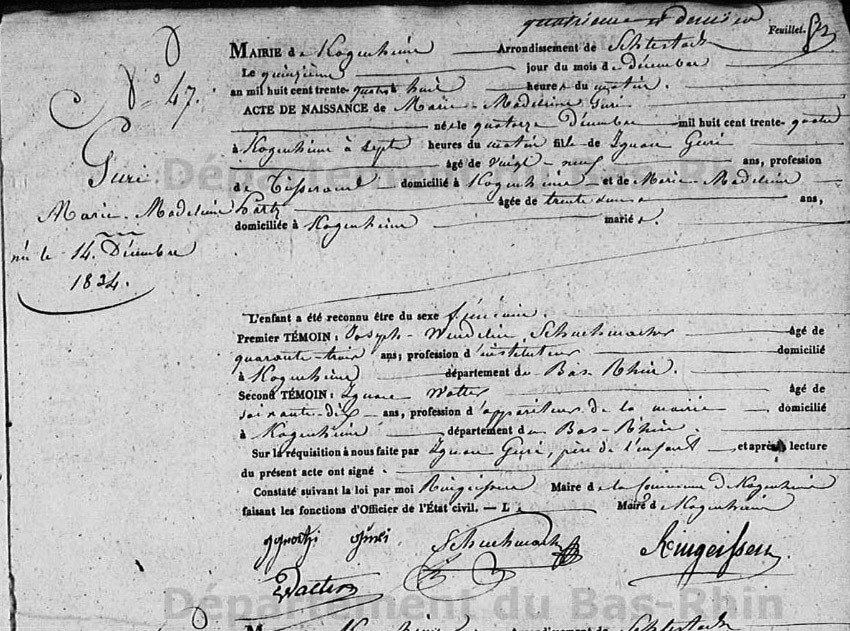 quatrième et dernier
Feuillet.
MAIRIE de Kogenheim Arrondissement de Schlestadt
Le quinzième jour du mois de décembre
an mil huit cent trente-quatre à huit heures du matin.
ACTE DE NAISSANCE de Marie-Madeleine Guri
née le quatorze décembre mil huit cent trente-quatre
à Kogenheim à sept heures du matin fille de Ignace Guri
âgé de vingt-neuf ans, profession
de Tisserand domicilié à Kogenheim et de Marie-Madeleine
âgée de trente ans,
domiciliée à Kogenheim mariés.
N.° 47.
Guri
Marie-Madeleine
née le 14. Décembre
1834.
L'enfant a été reconnu être du sexe féminin.
Premier TÉMOIN: Joseph-Wendelin Schuhmacher âgé de
quarante-trois ans, profession d'instituteur domicilié
à Kogenheim département du Bas-Rhin.
Second TÉMOIN: Ignace Walter âgé de
soixante-dix ans, profession d'appariteur de la mairie domicilié
à Kogenheim département du Bas-Rhin.
Sur la réquisition à nous faite par Ignace Guri, père de l'enfant, et après lecture
du présent acte ont signé
Constaté suivant la loi par moi Ringeissen Maire de la Commune de Kogenheim
faisant les fonctions d'Officier de l'État civil. — Le Maire de Kogenheim
Schuhmacher Ringeissen
Département du Bas-Rhin
Département du Bas-Rhin